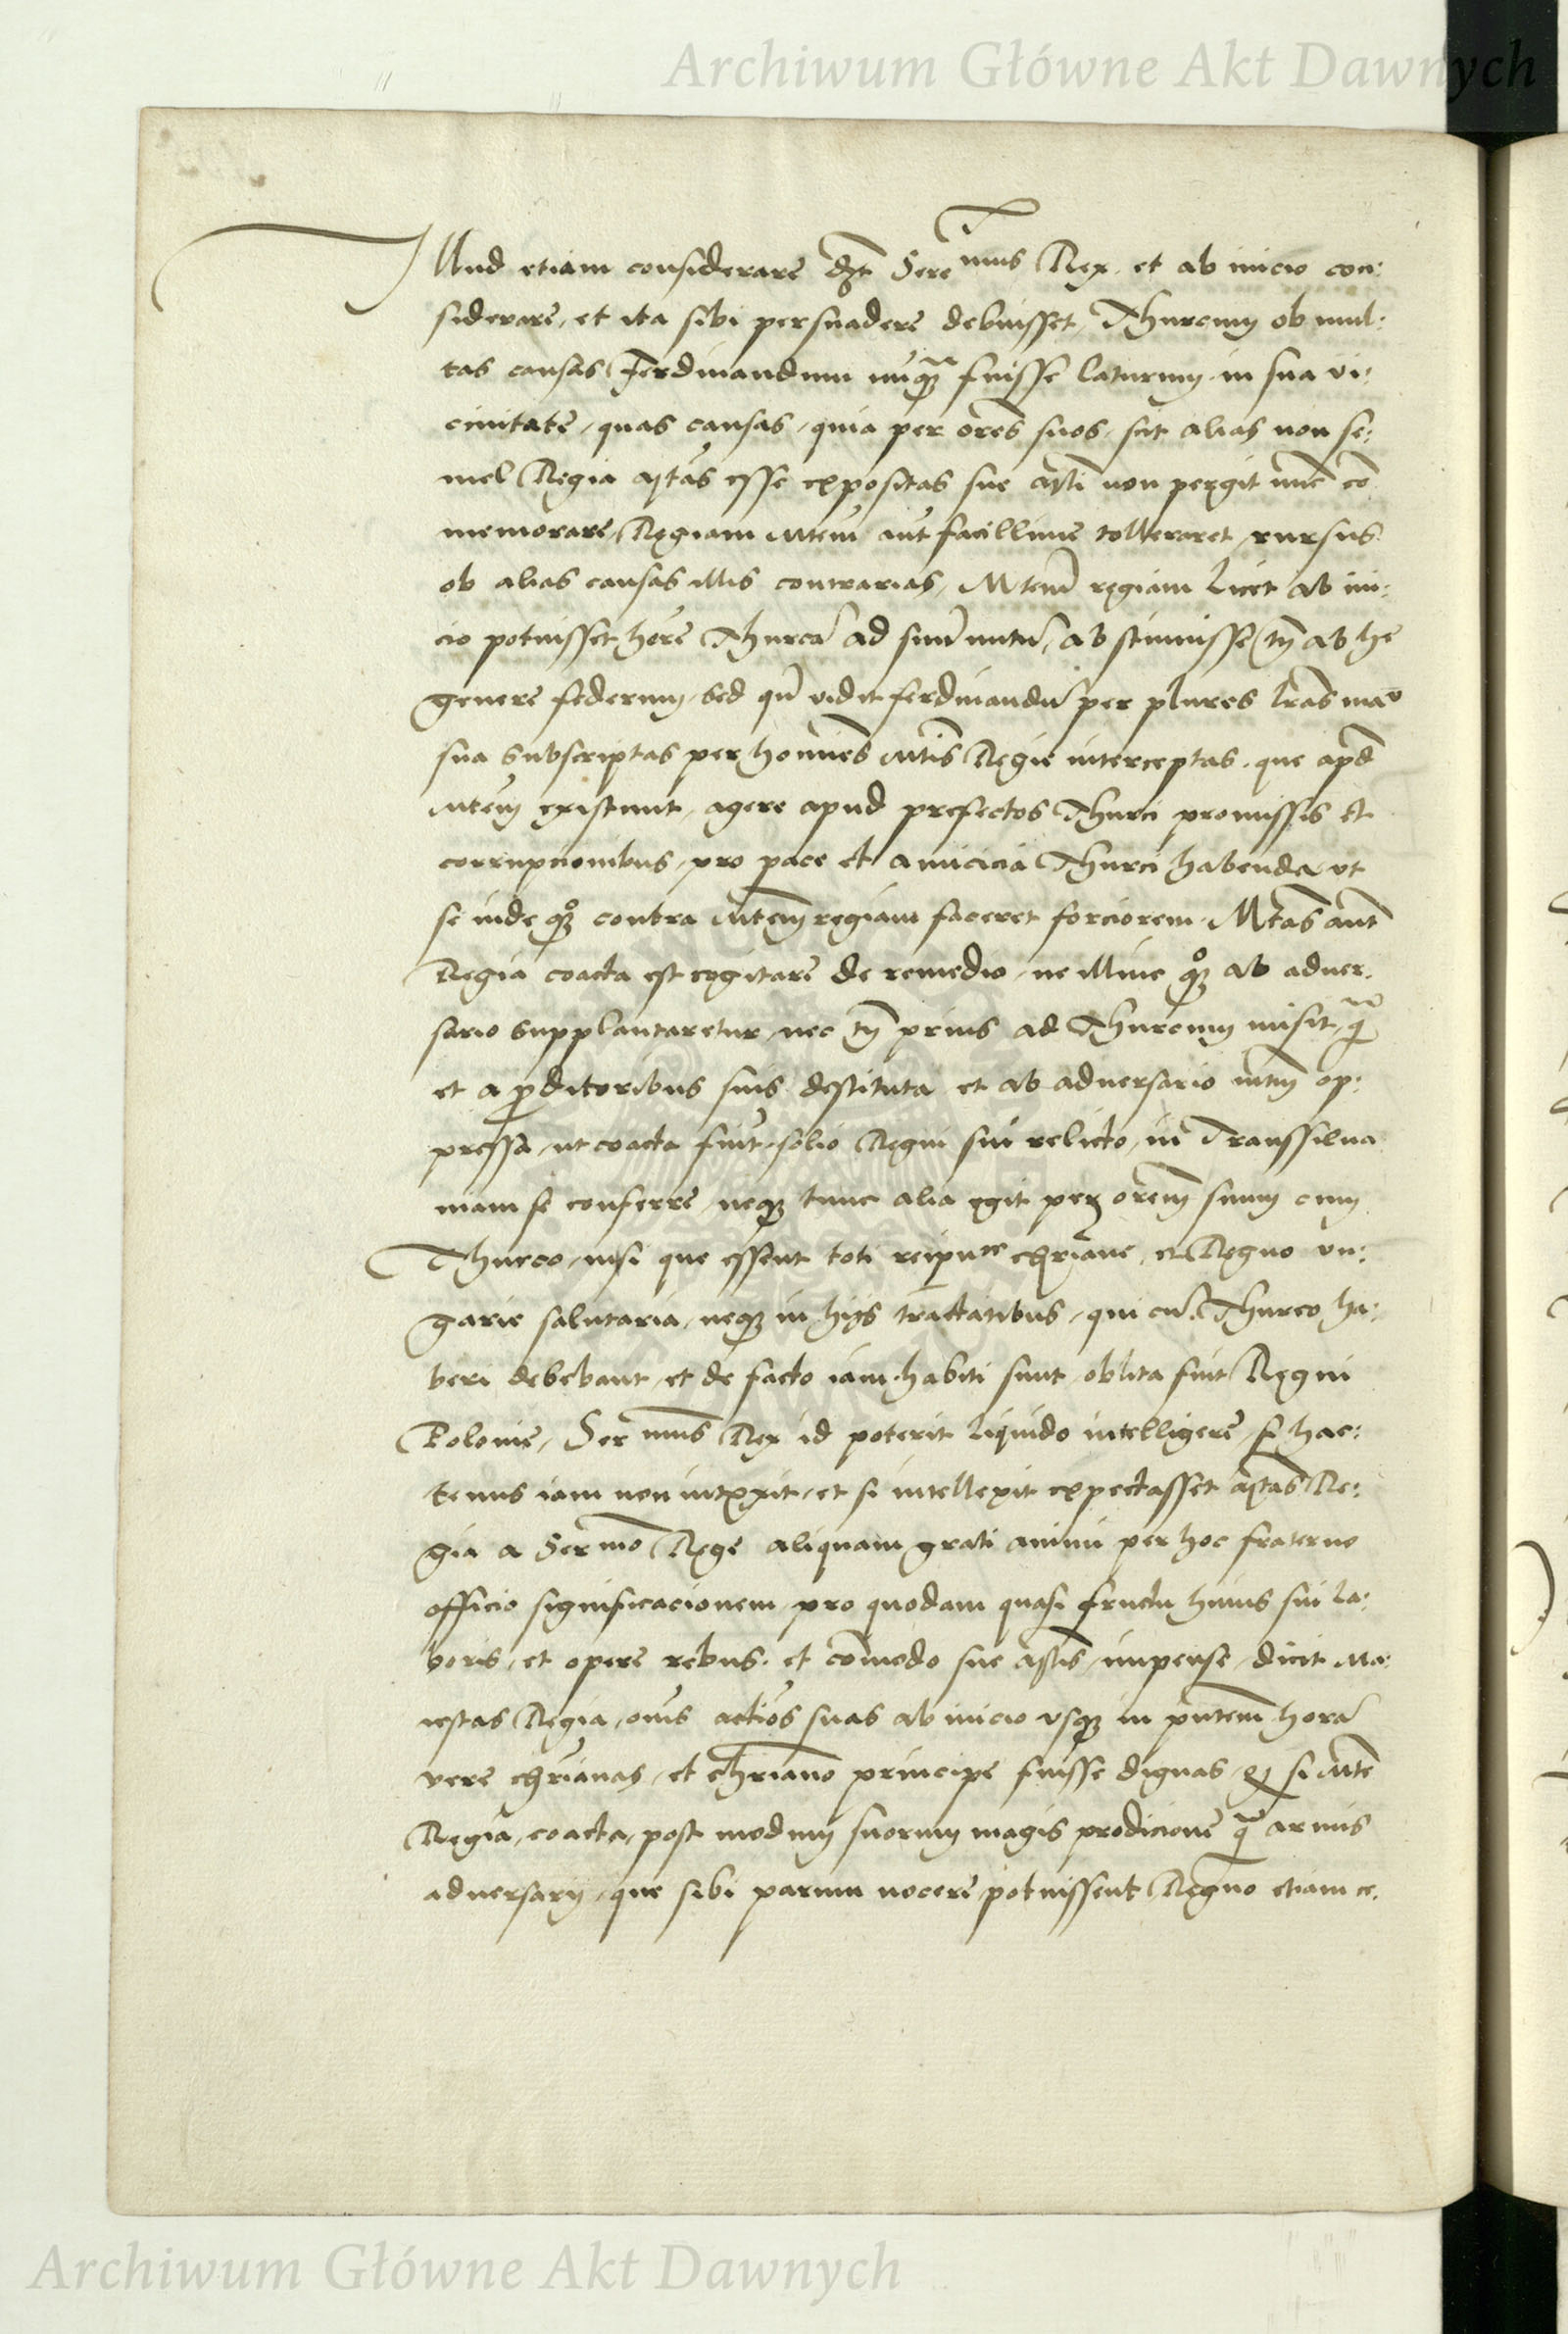 Archiwum Główne Akt Dawnych
Illud etiam considerare dꝫt Serenimus Rex et ab inicio con:
siderare, et ita sibi persuadere debuisset, Thurcum ob mul:
tas causas Ferdinandum nuqꝫ fuisse laturum in sua vi:
cinitate, quas causas, quia per ores suos, scit alias non se:
mel Regia Mtas esse expositas sue Mti non pergit nuc co
memorare, Regiam Mtem aut facillime tolleraret, rursus
ob alias causas illis contrarias, Mtem regiam licet ab ini:
cio potuisset hēre Thurcā ad suū nutū, abstinuisse tn̄ ab hē
genere federum, sed qn̄ vidit ferdinandū per plures lrās manu
sua subscriptas per homines Mtis Regie interceptas, que apd
Mtem existunt, agere apud prefectos Thurci promissis et
corrupcionibus, pro pace et amicicia Thurci habenda, vt
se inde qꝫ contra Mtem regiam faceret forciorem, Mtas aut
Regia coacta est cogitare de remedio, ne illinc qꝫ ab adver:
sario supplantaretur, nec tn̄ prius ad Thurcum misit, q̄
et a proditoribus suis destituta et ab adversario intm̄ op:
pressa, ut coacta fuit, solio Regni sui relicto, in Transsilva
niam se conferre, neqꝫ tunc alia egit per orem suum cum
Thurco, nisi que essent toti reipuce chriane, et Regno vn:
garie salutaria, neqꝫ in hijs tractatibus, qui cū Thurco ha:
beri debebant, et de facto iam habiti sunt, oblita fuit Regni
Polonie, Sermus Rex id poterit liquido intelligere, si hac:
tenus iam non intexit, et si intellexit expectasset Mtas Re:
gia a Sermo Rege aliquam grati animi per hoc fraterno
officio significacionem, pro quodam quasi fructu huius sui la:
boris, et opere rebus, et comodo sue Mtis, impense, dicit Ma:
iestas Regia, omēs actiōs suas ab inicio vsqꝫ in pntem horā
vere chrianas, et chriano principe fuisse dignas, si Mtē
Regia, coacta, post modum suorum magis prodicione q̄ armis
adversarij, que sibi parum nocere potuissent Regno etiam ce:
Archiwum Główne Akt Dawnych